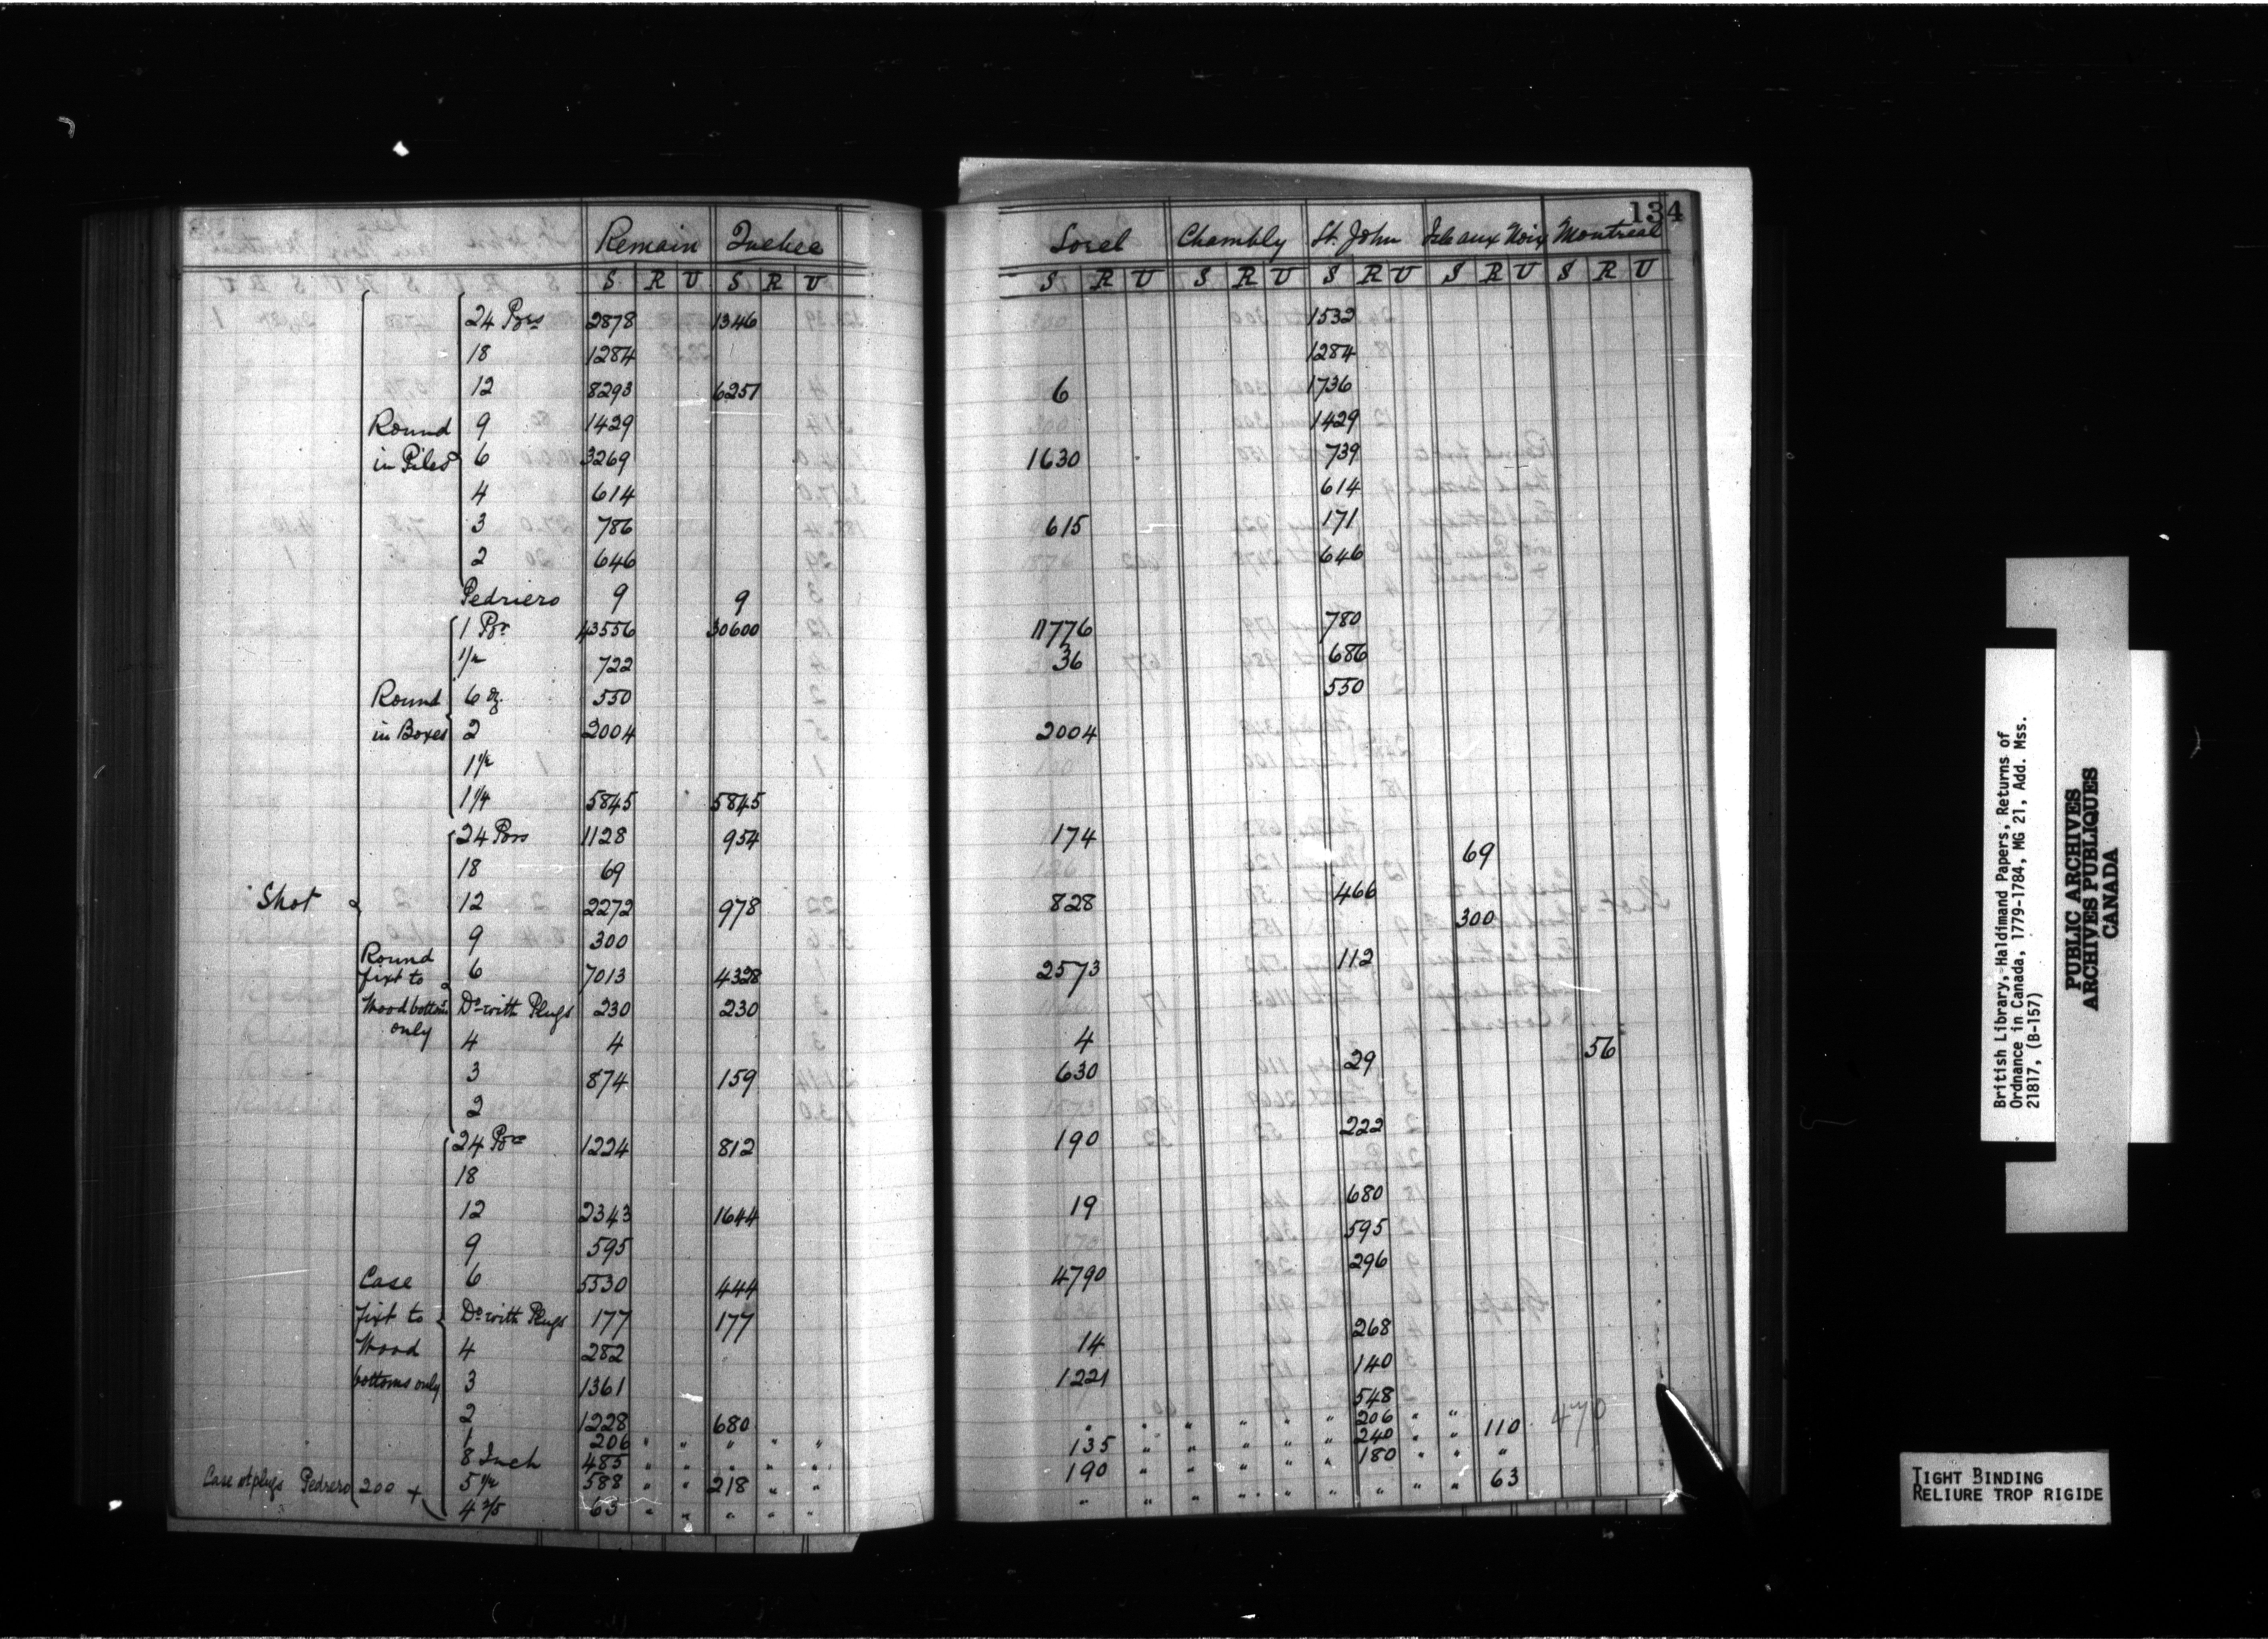 134
Remain Quebec Sorel Chambly St. John Isle aux Noix Montreal
S R U S R U S R U S R U S R U S R U S R U
24 Prs 2878 1346 1532
18 1284 1284
12 8293 6251 6 1736
Round 9 1429 1429
in Piles 6 3269 1630 739
4 614 614
3 786 615 171
2 646 646
Pedriero 9 9
1 Pr 43556 30600 11776 780
1/2 722 36 686
Round 6 oz. 550 550
in Boxes 2 2004 2004
1 1/2
1 1/4 5845 5845
24 Prs 1128 954 174
18 69 69
Shot 12 2272 978 828 466
9 300 300
Round
fixt to 6 7013 4328 2573 112
Wood bottoms Do with Plugs 230 230
only 4 4 4
3 874 159 630 29 56
2
24 Pr 1224 812 190 222
18
12 2343 1644 19 680
9 595 595
Case 6 5530 444 4790 296
fixt to Do with Plugs 177 177
Wood 4 282 14 268
bottoms only 3 1361 1221 140
2 1228 680 548
1 206 " " " " " " " " " " " 206 " "
8 Inch 485 " " " " " 135 " " " " " " 240 " " 110 470
Case wt plugs Pedrero 200 + 5 1/2 588 " " 218 " " 190 " " " " " " 180 " " "
4 2/5 63 " " " " " " " " " " " " " " " 63
British Library, Haldimand Papers, Returns of
Ordnance in Canada, 1779-1784, MG 21, Add. Mss.
21817, (B-157)
PUBLIC ARCHIVES
ARCHIVES PUBLIQUES
CANADA
TIGHT BINDING
RELIURE TROP RIGIDE